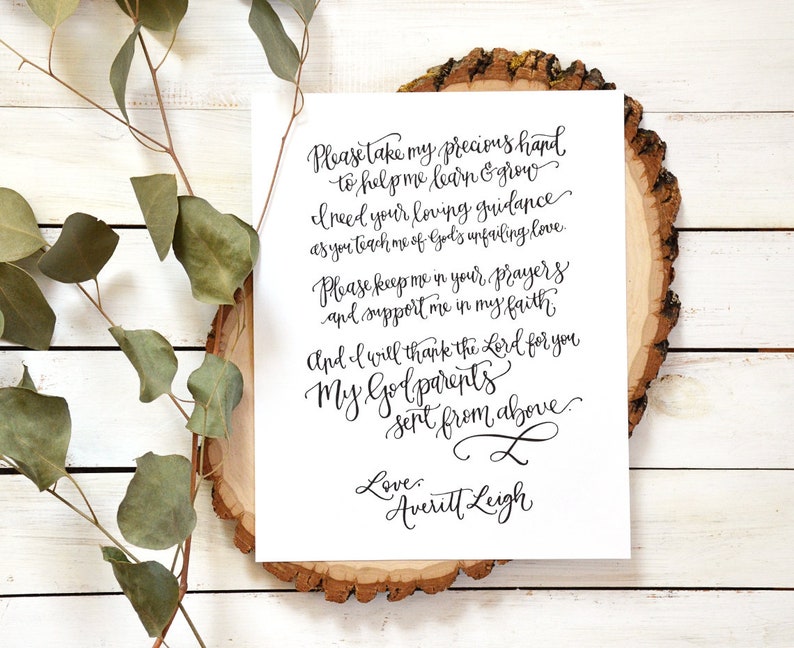 Please take my precious hand
to help me learn & grow
I need your loving guidance
as you teach me of God's unfailing love.
Please keep me in your prayers
and support me in my faith
And I will thank the Lord for you
My God parents
sent from above.
Love,
Averitt Leigh